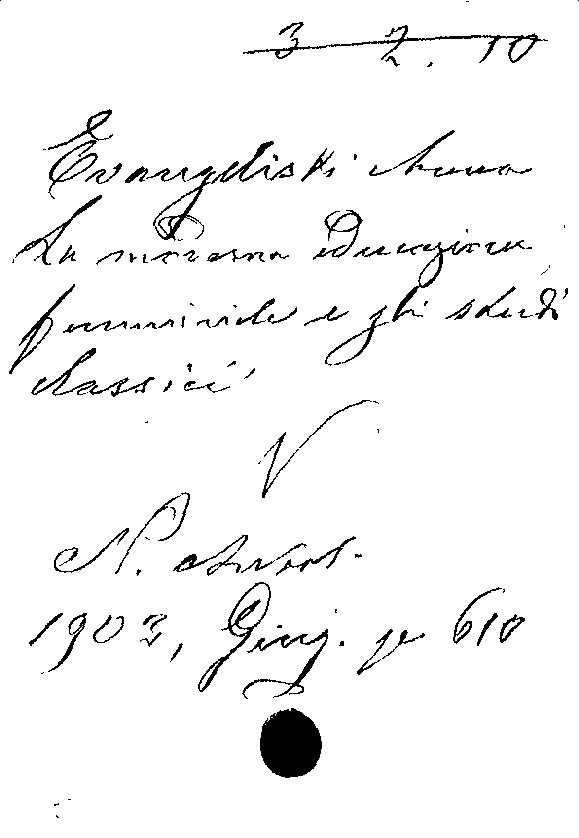 3 2. 10
Evangelisti Anna
La moderna educazione
femminile e gli studi
classici
V
N. Antol.
1903, Giug. p 610